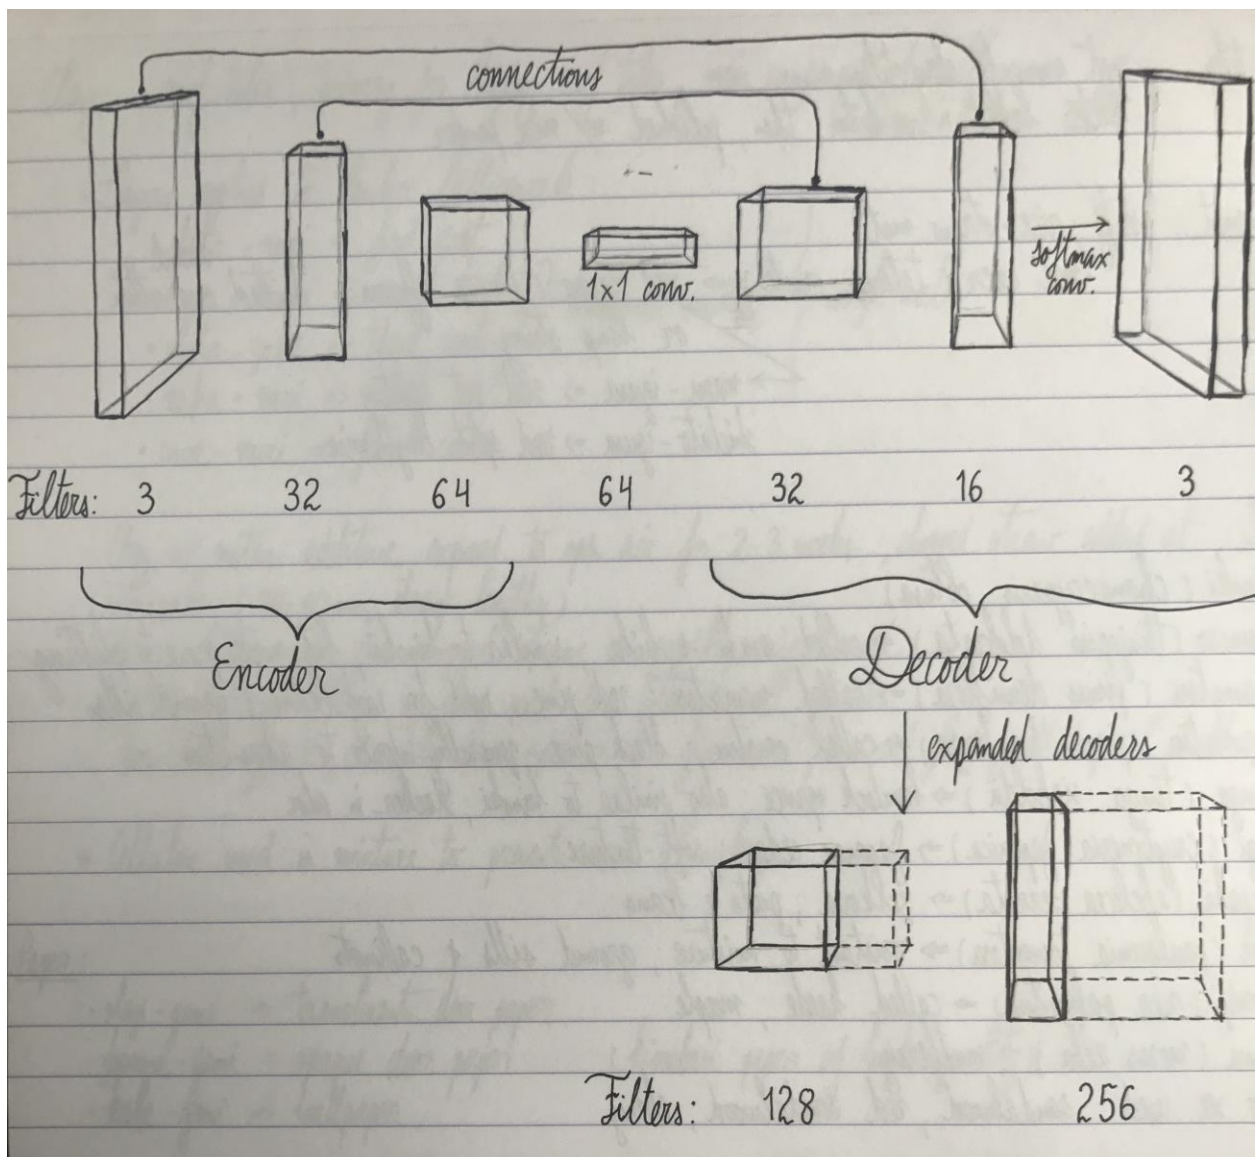 connections
1x1 conv.
softmax
conv.
Filters: 3 32 64 64 32 16 3
Encoder
Decoder
expanded decoders
Filters: 128 256